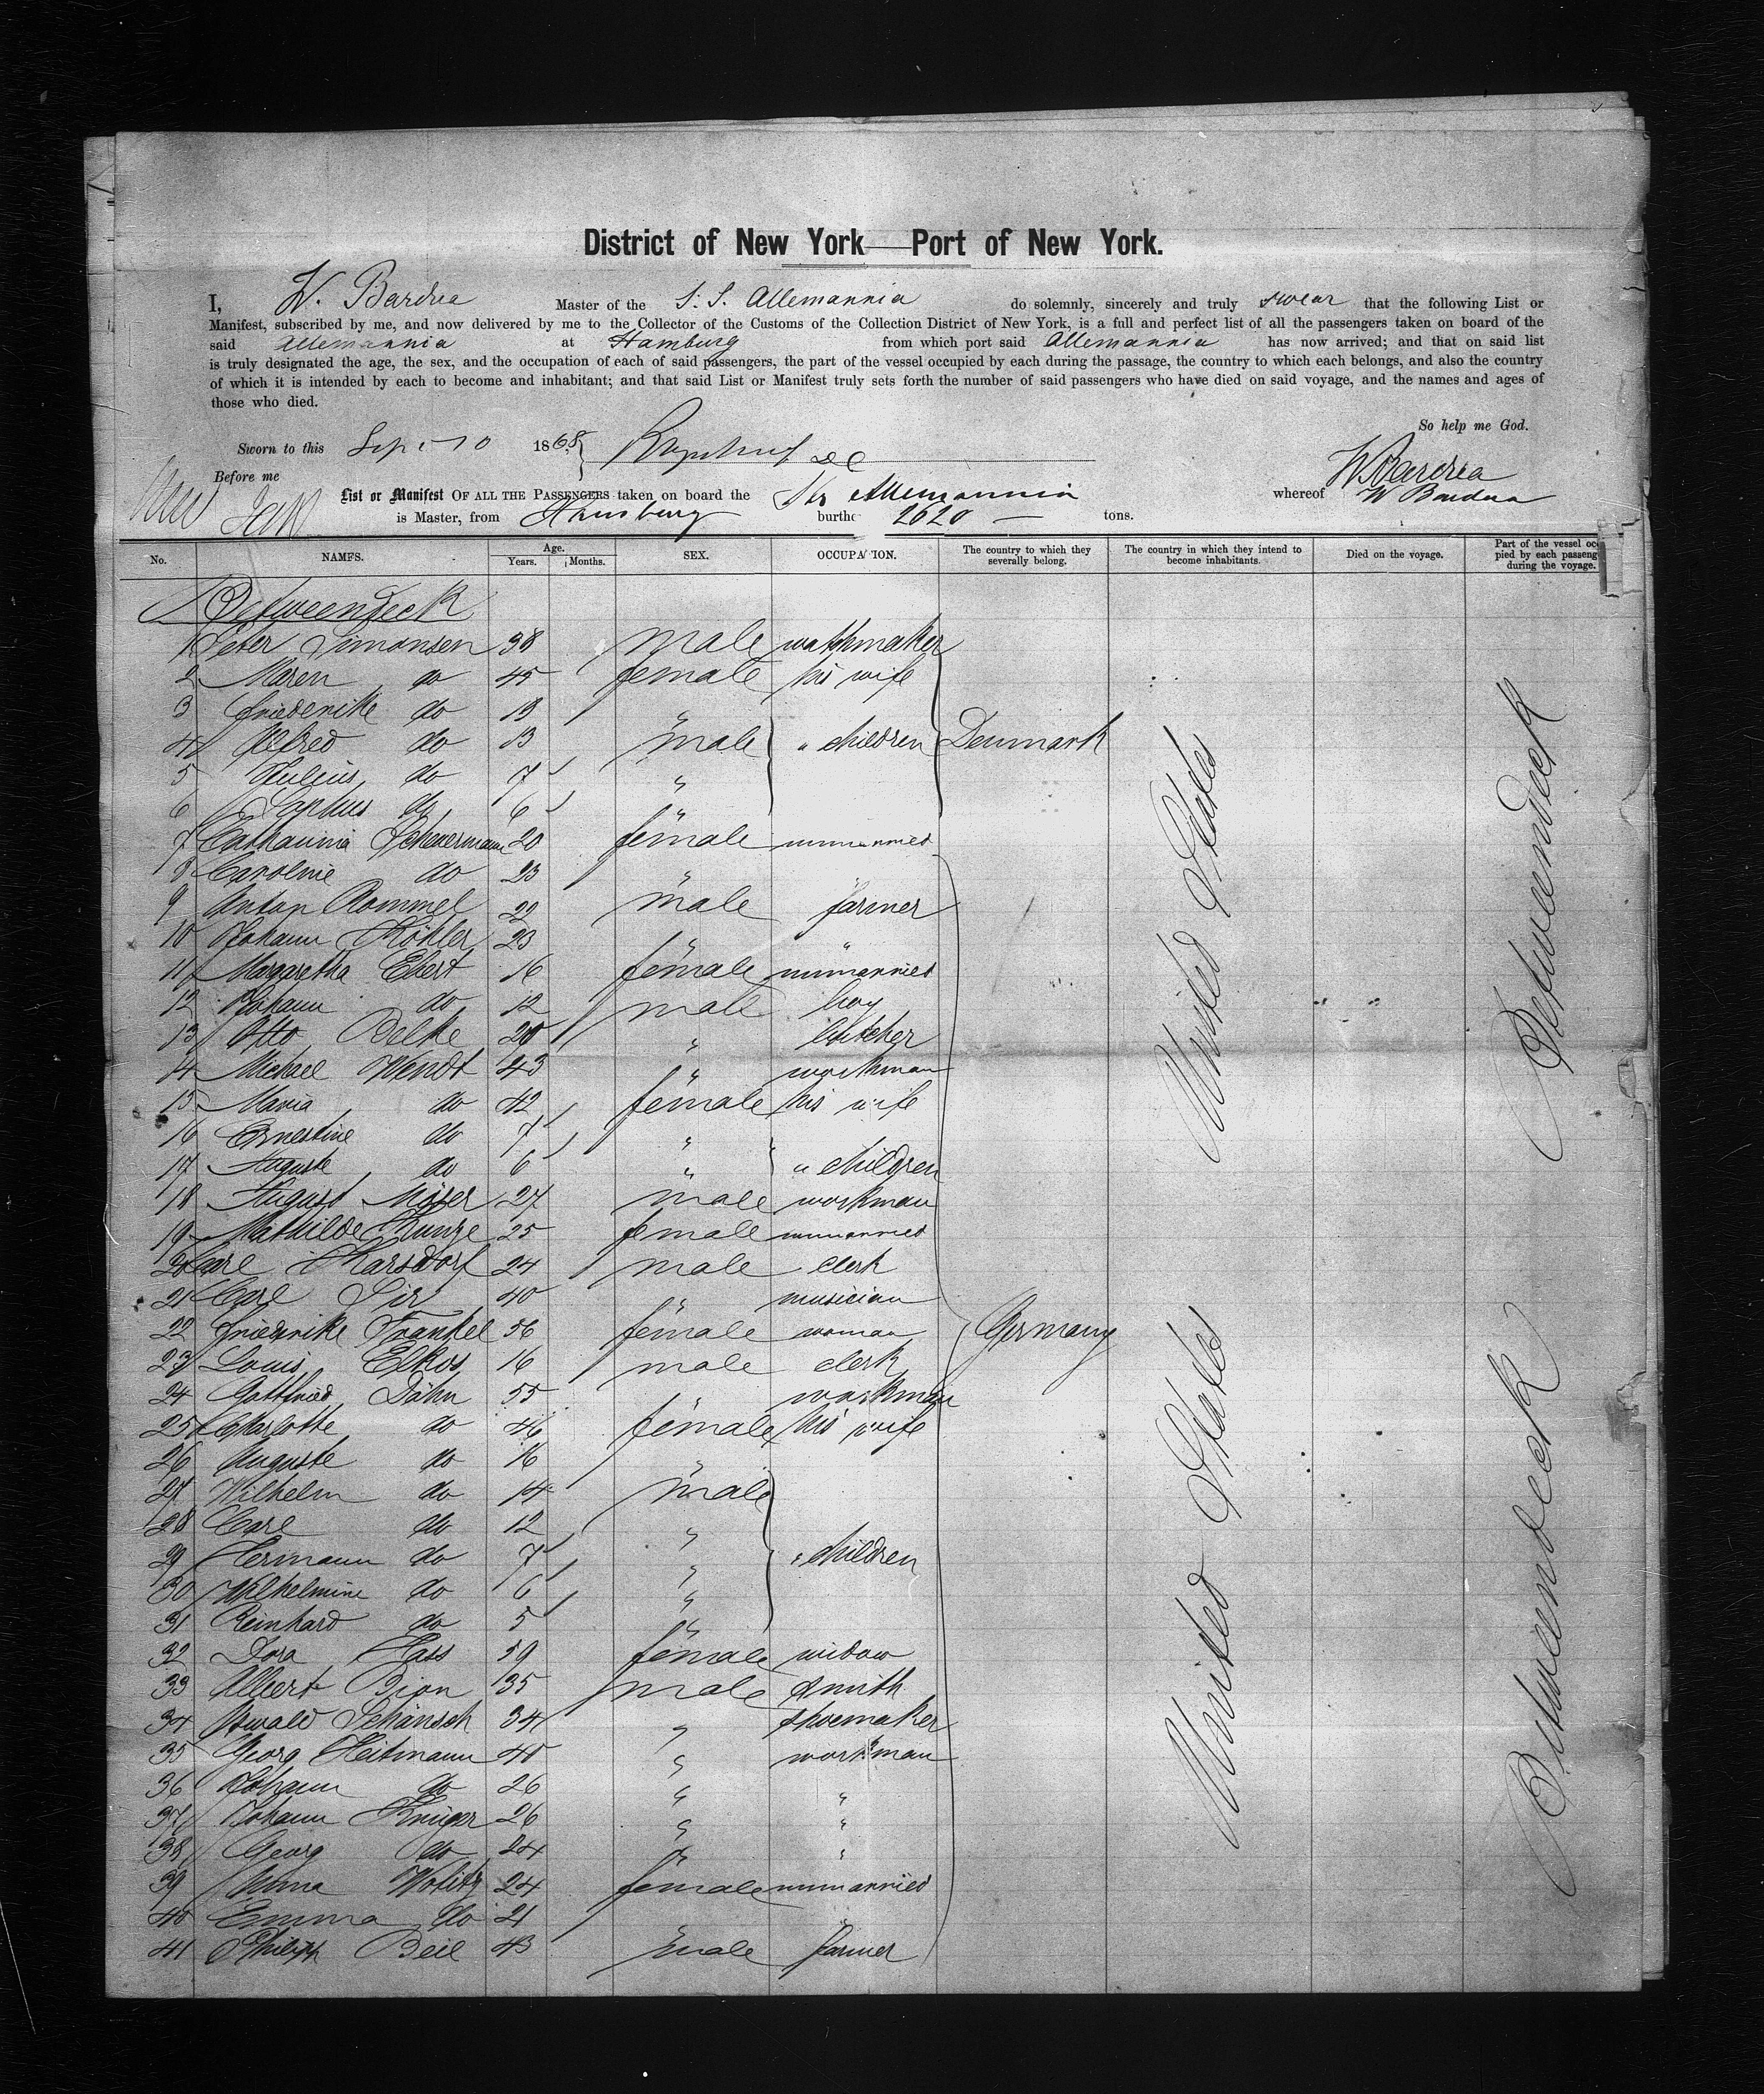 District of New York — Port of New York.
I, W. Bardua Master of the S. S. Allemannia do solemnly, sincerely and truly swear that the following List or
Manifest, subscribed by me, and now delivered by me to the Collector of the Customs of the Collection District of New York, is a full and perfect list of all the passengers taken on board of the
said Allemannia at Hamburg from which port said Allemannia has now arrived; and that on said list
is truly designated the age, the sex, and the occupation of each of said passengers, the part of the vessel occupied by each during the passage, the country to which each belongs, and also the country
of which it is intended by each to become and inhabitant; and that said List or Manifest truly sets forth the number of said passengers who have died on said voyage, and the names and ages of
those who died.
So help me God.
Sworn to this Sept 10 1868
W Bardua
Before me
List or Manifest OF ALL THE PASSENGERS taken on board the Str Allemannia whereof W Bardua
New York
is Master, from Hamburg burthe 2620 — tons.
No. NAMES. Age. Years. Months. SEX. OCCUPATION. The country to which they severally belong. The country in which they intend to become inhabitants. Died on the voyage. Part of the vessel occupied by each passeng during the voyage.
Betweendeck
1 Peter Simonsen 38 male watchmaker
2 Maren do 45 female his wife
3 Friederike do 19 "
4 Alfred do 13 male " children Denmark
5 Julius do 7 "
6 Sophus do 6 "
7 Catharina Scheuermann 20 female unmarried
8 Caroline do 23 "
9 Anton Rommel 22 male farmer
10 Johann Köhler 23 " "
11 Margaretha Ebert 16 female unmarried
12 Johann do 12 male boy
13 Otto Belke 20 " butcher
14 Michael Wendt 43 " workman
15 Maria do 42 female his wife
16 Ernestine do 7 "
17 Auguste do 6 " " children
18 August Möser 27 male workman
19 Mathilde Kunze 25 female unmarried
20 Carl Karsdorf 24 male clerk
21 Carl Sir 40 " musician
22 Friederike Frankel 56 female woman Germany
23 Louis Elkos 16 male clerk
24 Gottfried Dähn 55 " workman
25 Charlotte do 46 female his wife
26 Auguste do 16 "
27 Wilhelm do 14 male
28 Carl do 12 "
29 Hermann do 7 " " children
30 Wilhelmine do 6 "
31 Reinhard do 5 "
32 Dora Hass 59 female widow
33 Albert Bion 35 male smith
34 Oswald Schänsch 34 " shoemaker
35 Georg Heitmann 40 " workman
36 Johann do 26 " "
37 Johann Krüger 26 " "
38 Georg do 24 " "
39 Anna Wofitz 24 female unmarried
40 Emma do 21 " "
41 Philipp Beil 43 male farmer
United States
United States
Betweendeck
Betweendeck